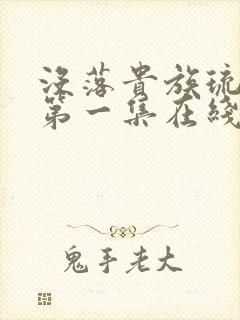 没落貴族琉
第一集在綫
鬼手老大